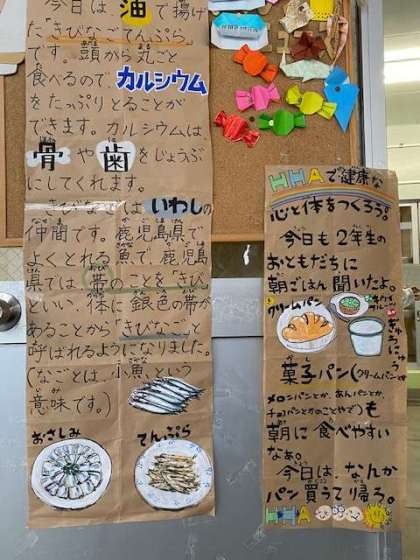 今日は油で揚げ
た「きびなごてんぷら」
です。頭から丸ごと
食べるので、カルシウム
をたっぷりとることが
できます。カルシウムは
骨や歯をじょうぶ
にしてくれます。
きびなごは、いわしの
仲間です。鹿児島県で
よくとれる魚で、鹿児島
県では帯のことを「きび」
といい、体に銀色の帯が
あることから「きびなご」と
呼ばれるようになりました。
(なごとは小魚という
意味です。)
おさしみ
てんぷら
HHAで健康な
心と体をつくろう。
今日も2年生の
おともだちに
朝ごはん聞いたよ。
クリームパン
ぎゅうにゅう
菓子パン(クリームパンや
メロンパンとか、あんパンとか、
チョコパンとかのことやで)も
朝に食べやすい
なぁ。
今日は、なんか
パン買うて帰ろ。
HHA